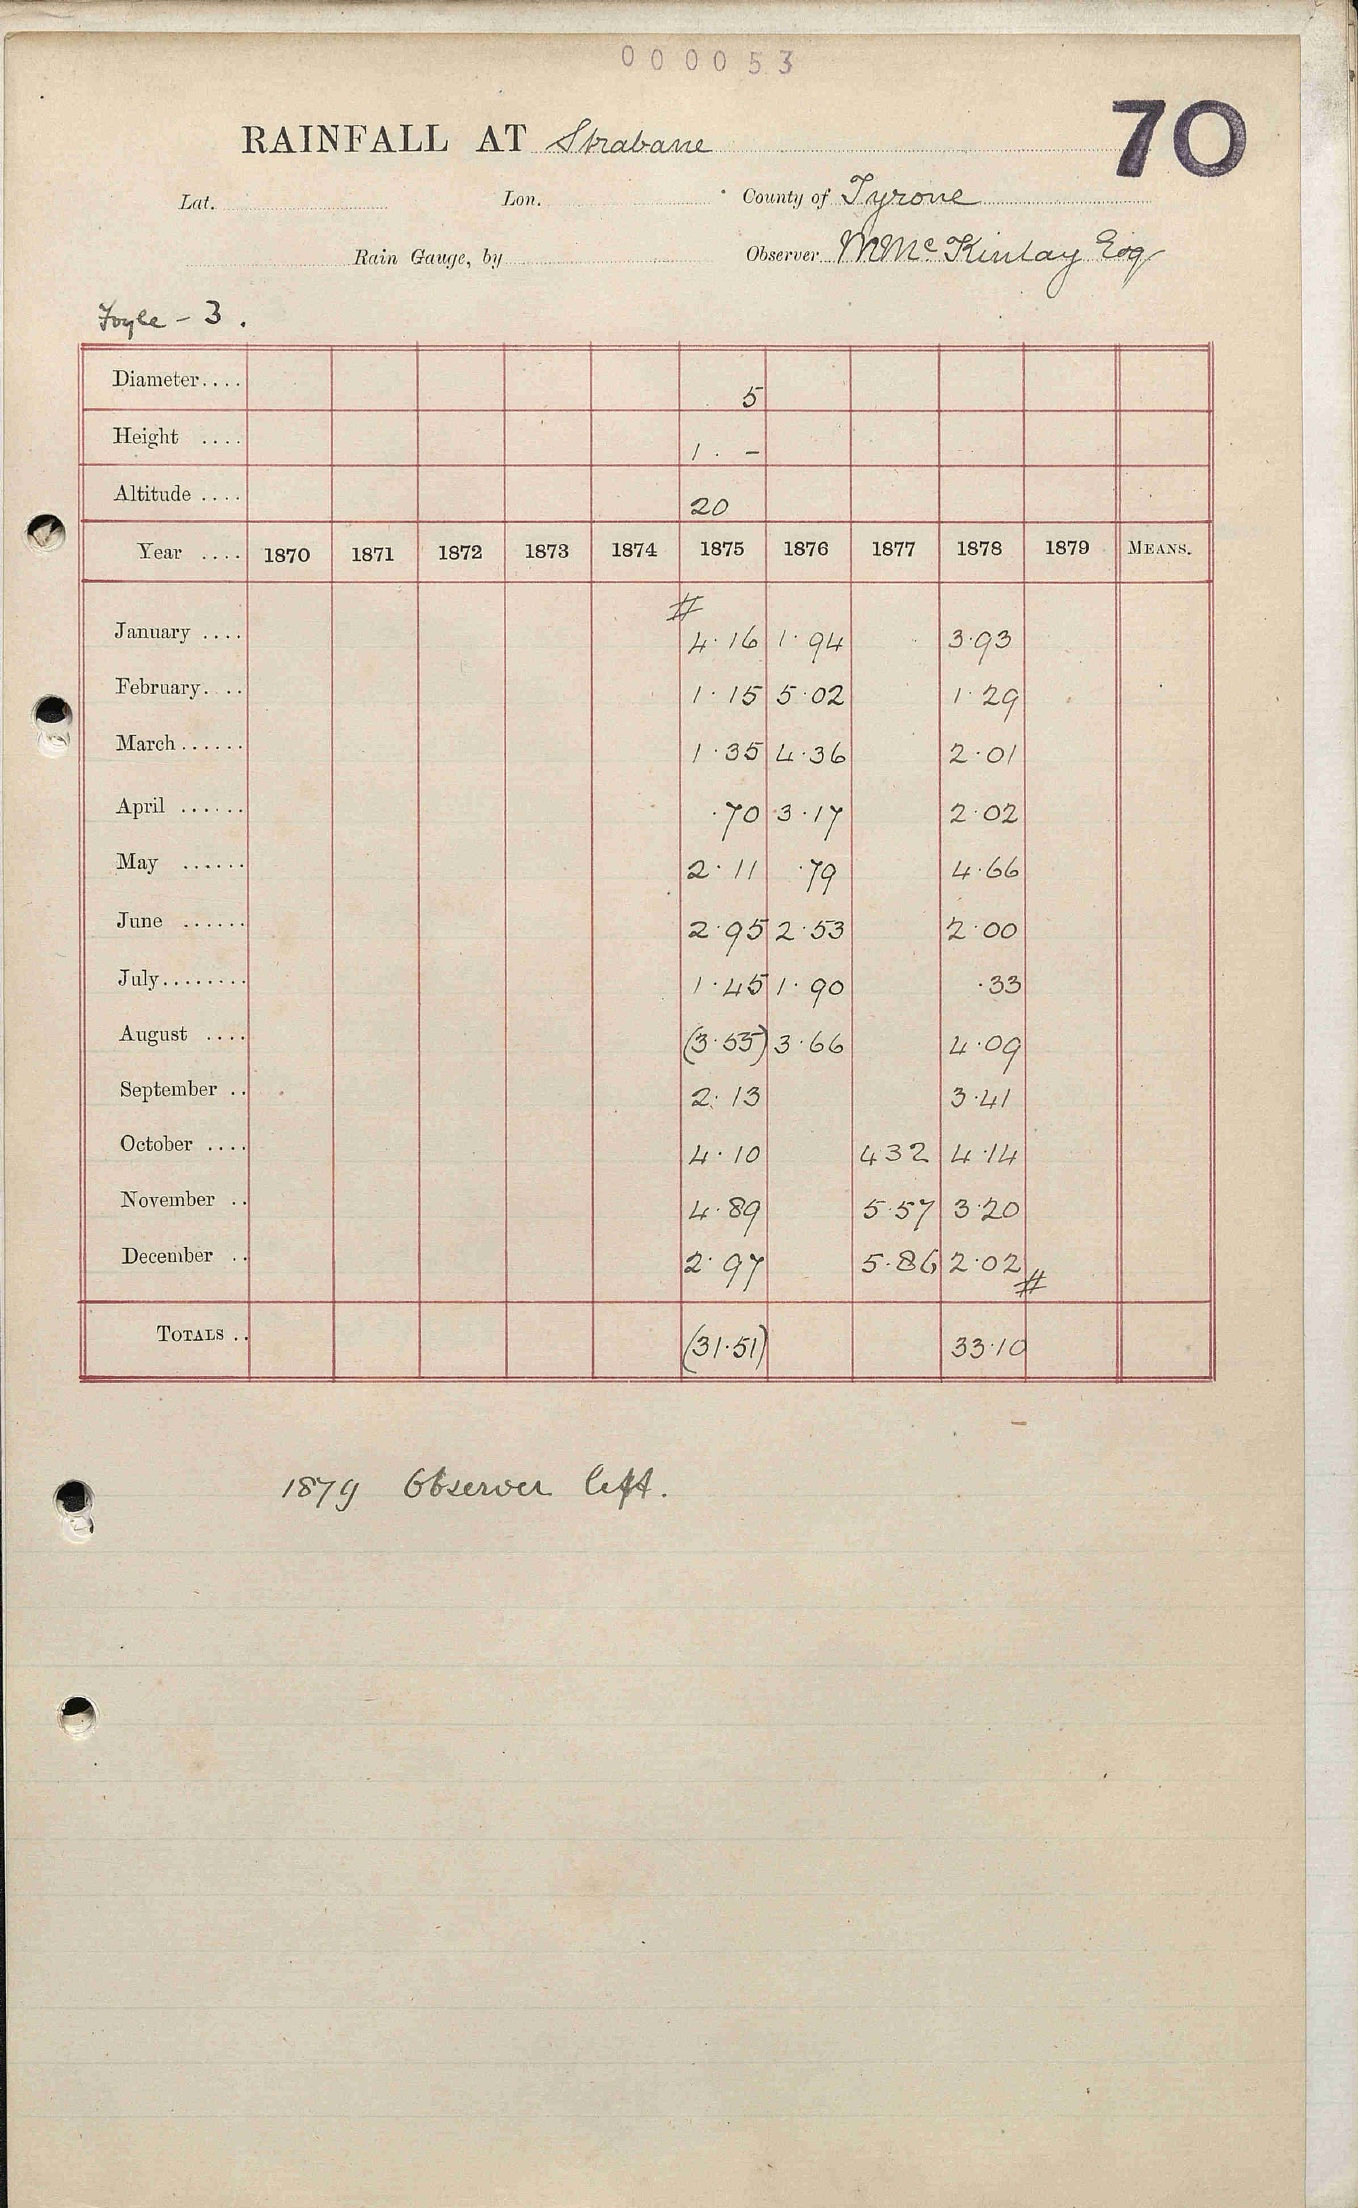 000053
70
RAINFALL AT Strabane
Lat. Lon. County of Tyrone
Rain Gauge, by Observer M McKinlay Esq
Foyle - 3.
Diameter.... 5
Height .... 1. -
Altitude .... 20
Year .... 1870 1871 1872 1873 1874 1875 1876 1877 1878 1879 MEANS.
#
January .... 4.16 1.94 3.93
February.... 1.15 5.02 1.29
March...... 1.35 4.36 2.01
April ...... .70 3.17 2.02
May ...... 2.11 .79 4.66
June ...... 2.95 2.53 2.00
July........ 1.45 1.90 .33
August .... (3.55) 3.66 4.09
September .. 2.13 3.41
October .... 4.10 432 4.14
November .. 4.89 5.57 3.20
December .. 2.97 5.86 2.02 #
TOTALS .. (31.51) 33.10
1879 Observer left.